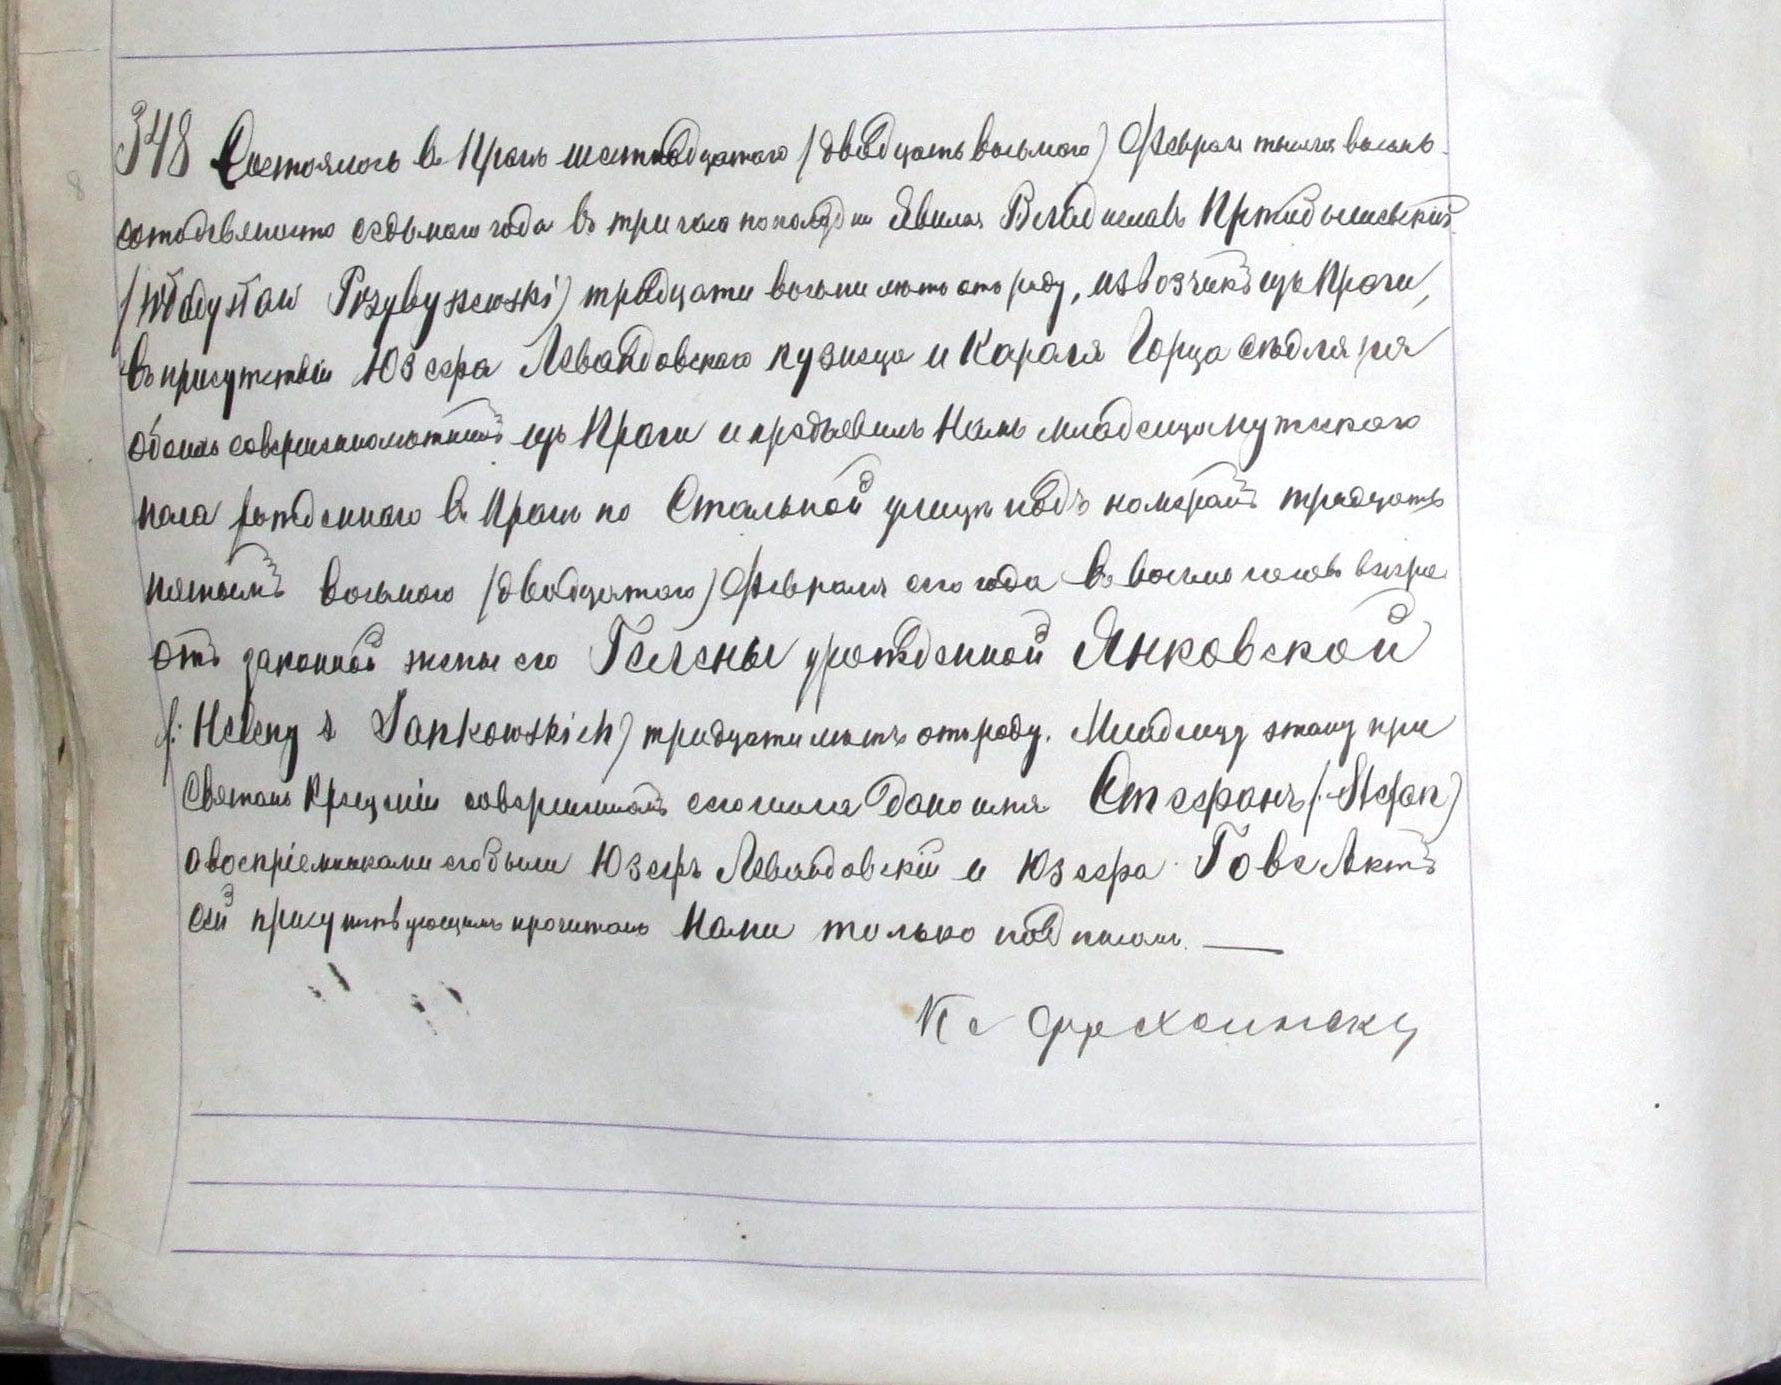 348 Состоялось въ Прагѣ шестнадцатаго (двадцать восьмаго) Февраля тысяча восемь-
сотъ девяносто седьмаго года въ три часа по полудни Явился Владиславъ Пржибышевскій
(Władysław Przybyszewski) тридцати восьми лѣтъ отъ роду, извозчикъ изъ Праги,
въ присутствіи Юзефа Левандовскаго кузнеца и Кароля Горца сѣдляря
обоихъ совершеннолѣтнихъ изъ Праги и предъявилъ Намъ младенца мужскаго
пола рожденнаго въ Прагѣ по Стальной улицѣ подъ номеромъ тридцать
пятымъ восьмаго (двадцатаго) Февраля сего года въ восемь часовъ вечера
отъ законной жены его Гелены урожденной Янковской
(: Heleny z Jankowskich) тридцати лѣтъ отъ роду. Младенцу этому при
Святомъ Крещеніи совершенномъ сего числа дано имя Стефанъ (: Stefan)
а воспріемниками его были Юзефъ Левандовскій и Юзефа Актъ
сей присутствующимъ прочитанъ Нами только подписанъ. —